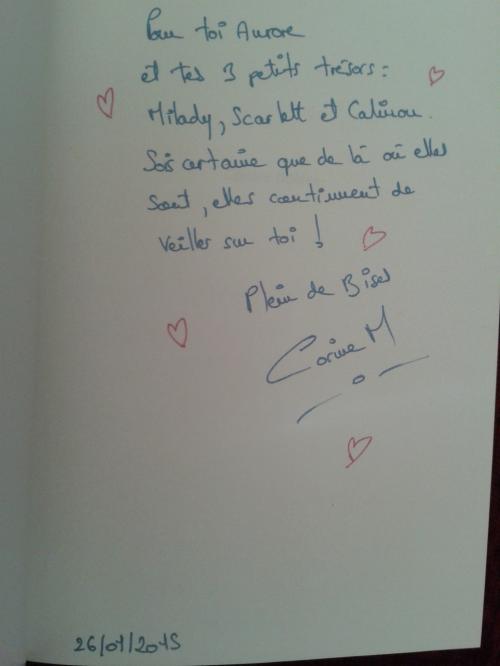 Pour toi Aurore
et tes 3 petits trésors :
Milady, Scarlett et Calinou.
Sois certaine que de là où elles
sont, elles continuent de
veiller sur toi !
Plein de Bises
Corine M
26/01/2015